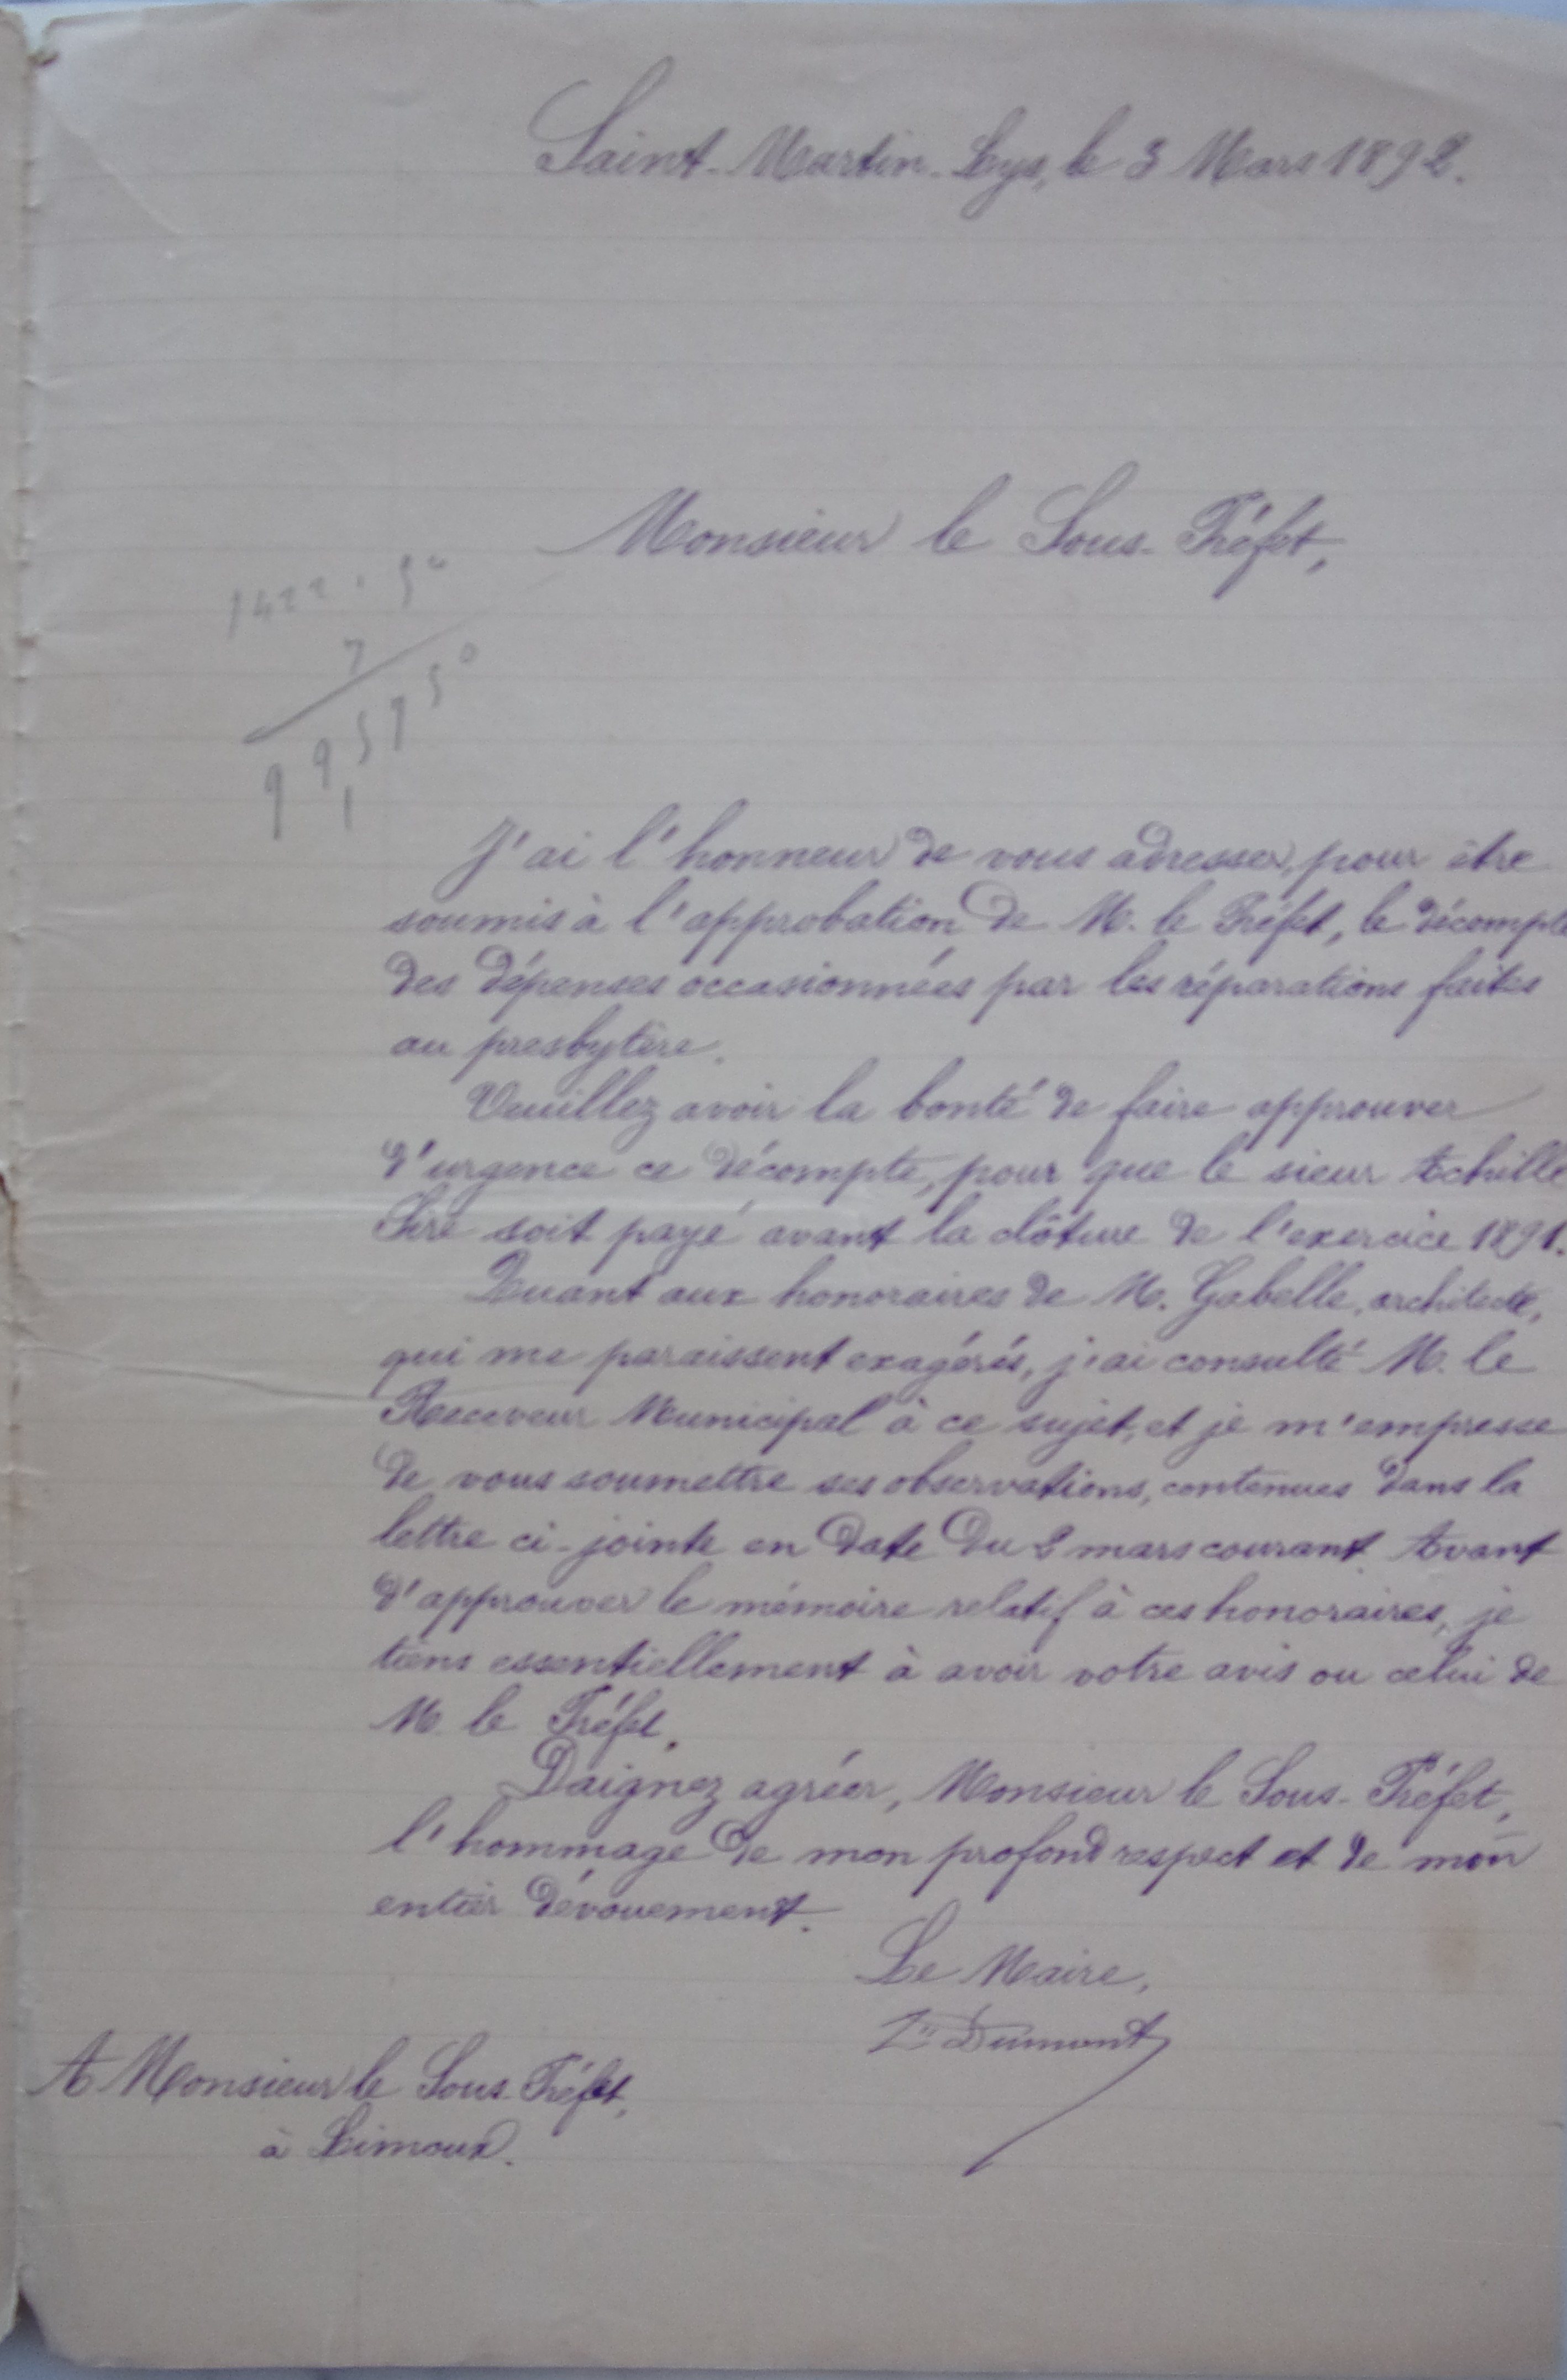 Saint-Martin-Lys, le 3 Mars 1892.
Monsieur le Sous-Préfet,
1422.50
7
995750
1
J'ai l'honneur de vous adresser, pour être
soumis à l'approbation de M. le Préfet, le décompte
des dépenses occasionnées par les réparations faites
au presbytère.
Veuillez avoir la bonté de faire approuver
d'urgence ce décompte, pour que le sieur Achille
Siré soit payé avant la clôture de l'exercice 1891.
Quant aux honoraires de M. Gabelle, architecte,
qui me paraissent exagérés, j'ai consulté M. le
Receveur Municipal à ce sujet, et je m'empresse
de vous soumettre ses observations, contenues dans la
lettre ci-jointe en date du 2 mars courant. Avant
d'approuver le mémoire relatif à ces honoraires, je
tiens essentiellement à avoir votre avis ou celui de
M. le Préfet.
Daignez agréer, Monsieur le Sous-Préfet,
l'hommage de mon profond respect et de mon
entier dévouement.
Le Maire,
Dumont
A Monsieur le Sous-Préfet,
à Limoux.